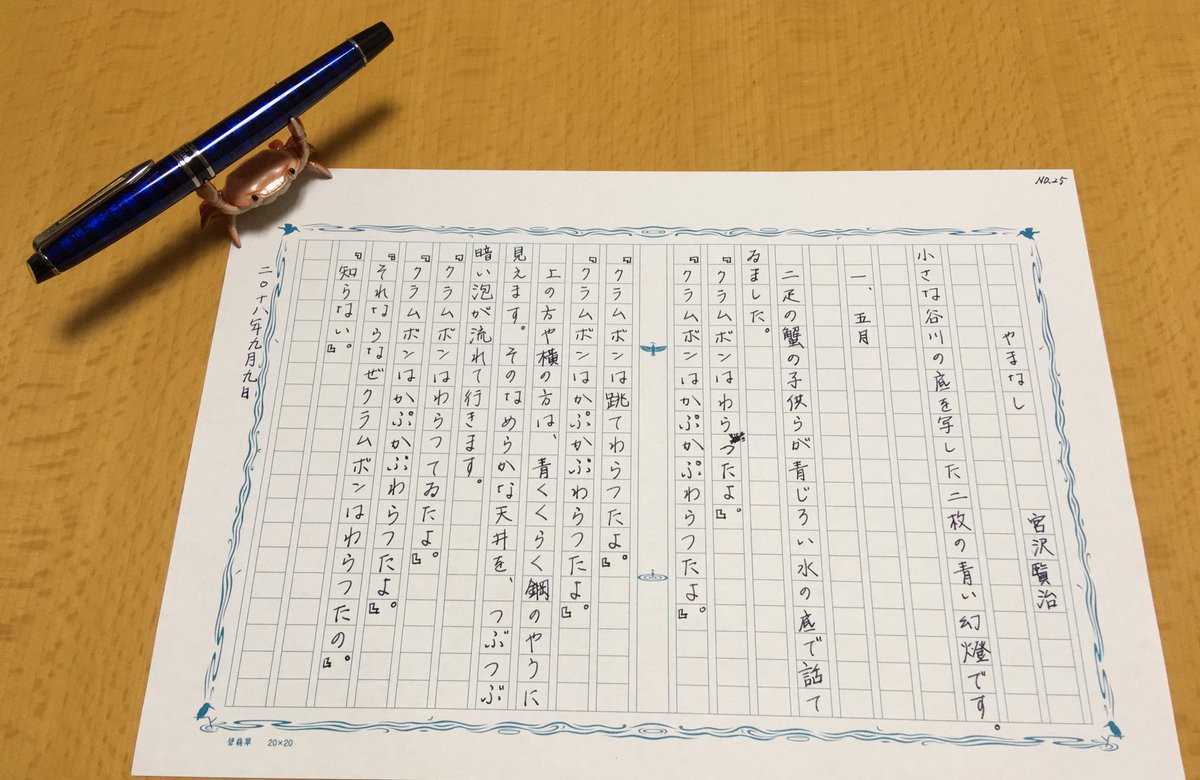 NO.25
やまなし
宮沢賢治
小さな谷川の底を写した二枚の青い幻燈です。
一、五月
二疋の蟹の子供らが青じろい水の底で話て
ゐました。
『クラムボンはわらつたよ。』
『クラムボンはかぷかぷわらつたよ。』
『クラムボンは跳てわらつたよ。』
『クラムボンはかぷかぷわらつたよ。』
上の方や横の方は、青くくらく鋼のやうに
見えます。そのなめらかな天井を、つぶつぶ
暗い泡が流れて行きます。
『クラムボンはわらつてゐたよ。』
『クラムボンはかぷかぷわらつたよ。』
『それならなぜクラムボンはわらつたの。』
『知らない。』
二〇十八年九月九日
碧翡翠 20×20